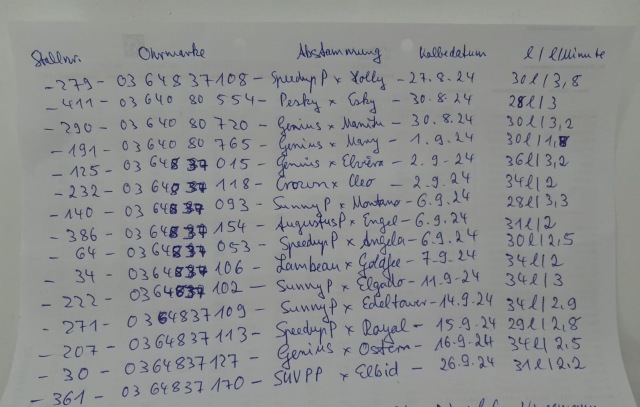 Stallnr. Ohrmarke Abstammung Kalbedatum l / l/Minute
- 279 - 03 64837108 - SpeedupP x Holly - 27.8.24 30l / 3,8
- 411 - 03 640 80 554 - Pesky x Esky - 30.8.24 28l / 3
- 290 - 03 640 80 720 - Genius x Manitu - 30.8.24 30l / 3,2
- 191 - 03 640 80 765 - Genius x Many - 1.9.24 30l / 1,8
- 125 - 03 64837 015 - Genius x Elvira - 2.9.24 36l / 3,2
- 232 - 03 64837 118 - Crown x Cleo - 2.9.24 34l / 2
- 140 - 03 64837 093 - SunnyP x Montano - 6.9.24 28l / 3,3
- 386 - 03 64837 154 - AugustusP x Engel - 6.9.24 31l / 2
- 64 - 03 64837 053 - SpeedupP x Angela - 6.9.24 30l / 2,5
- 34 - 03 64837 106 - Lambeau x Goldfee - 7.9.24 34l / 2
- 222 - 03 64837 102 - SunnyP x Elgado - 11.9.24 34l / 3
- 271 - 03 64837109 - SunnyP x Edeltower - 14.9.24 34l / 2,9
- 207 - 03 64837113 - SpeedupP x Royal - 15.9.24 29l / 2,8
- 30 - 03 64837127 - Genius x Ostern - 16.9.24 34l / 2,5
- 361 - 03 64837 170 - SUVPP x Elbid - 26.9.24 31l / 2,2